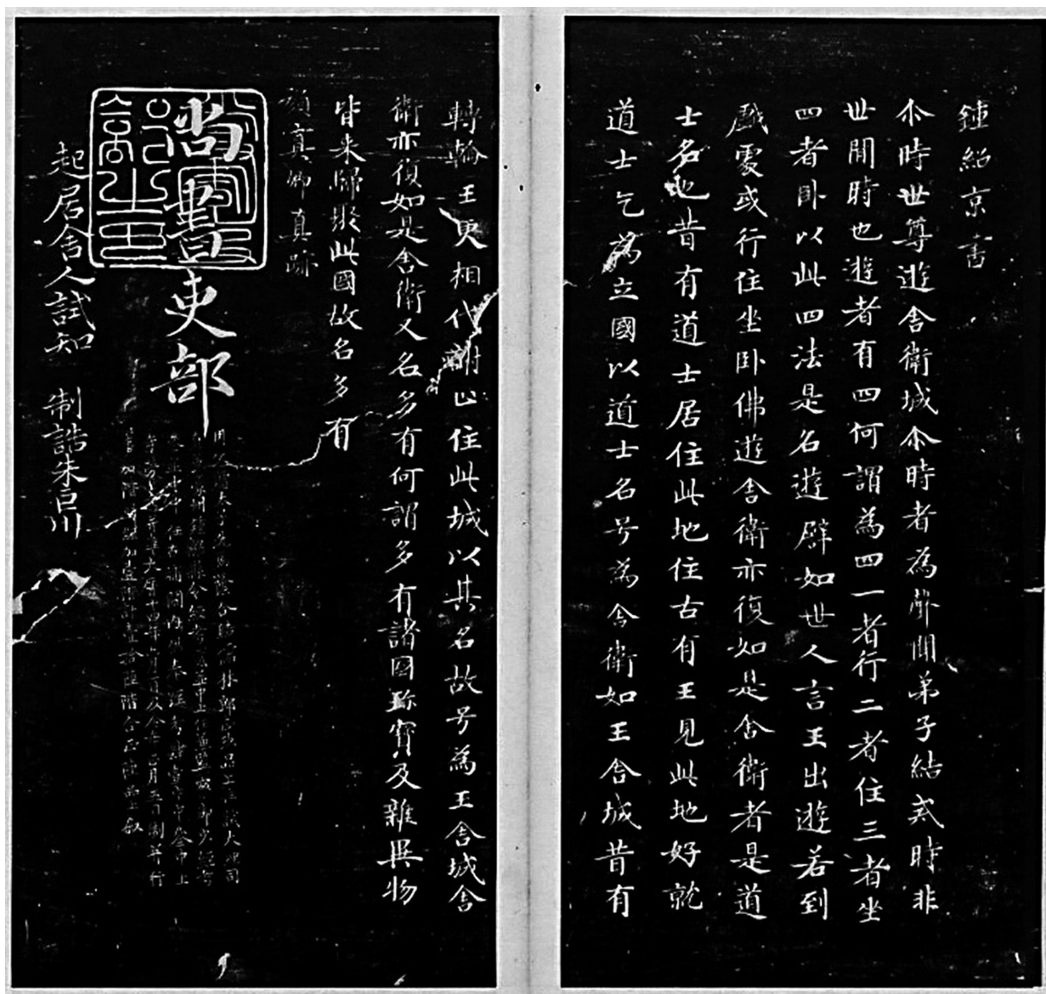 鍾紹京書
尒時世尊遊舍衛城尒時者為聲聞弟子結戒時非
世間時也遊者有四何謂為四一者行二者住三者坐
四者卧以此四法是名遊辟如世人言王出遊若到
戲處或行住坐卧佛遊舍衛亦復如是舍衛者是道
士名也昔有道士居住此地住古有王見此地好就
道士乞為立國以道士名号為舍衛如王舍城昔有
轉輪王更相代謝止住此城以其名故号為王舍城舍
衛亦復如是舍衛又名多有何謂多有諸國珎寶及雜異物
皆来歸聚此國故名多有
顔真卿真跡
尚書吏部
起居舍人試知 制誥朱巨川